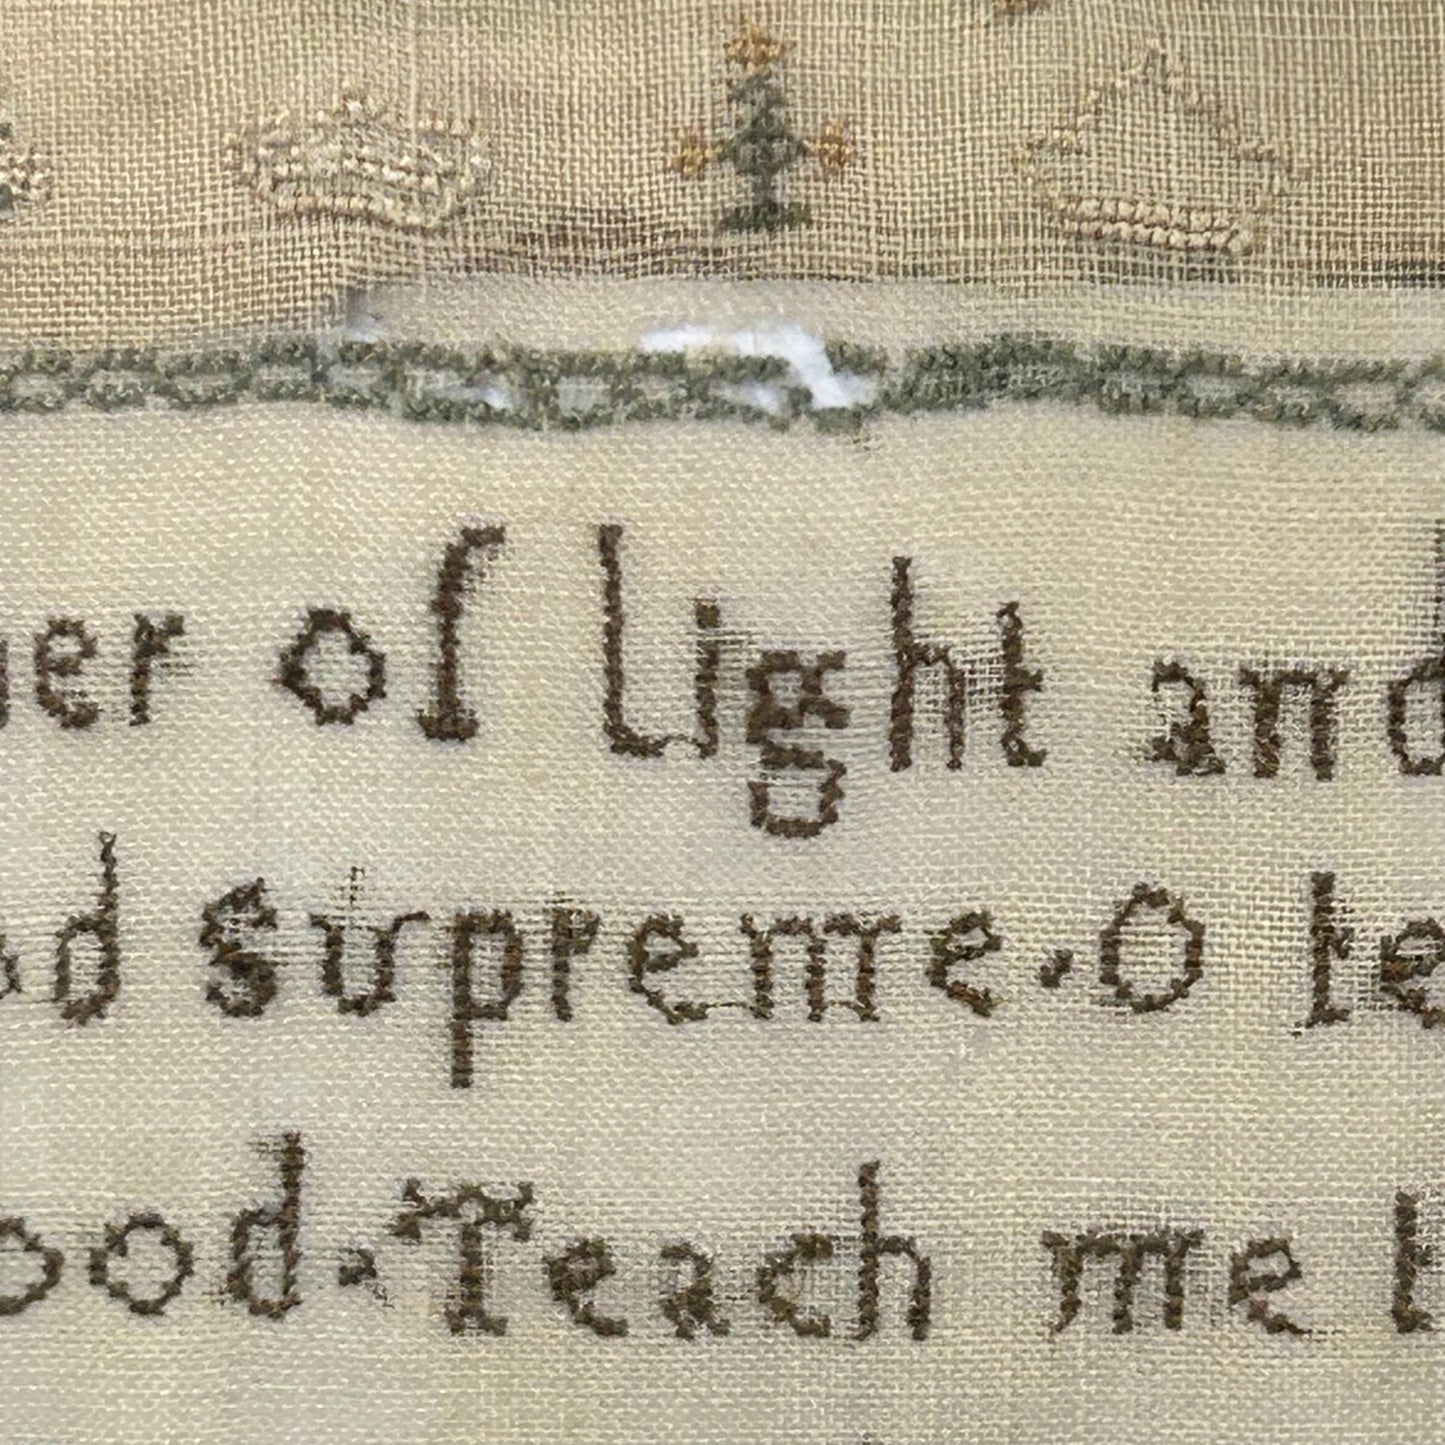 er of light and
od supreme. O te
ood. Teach me t